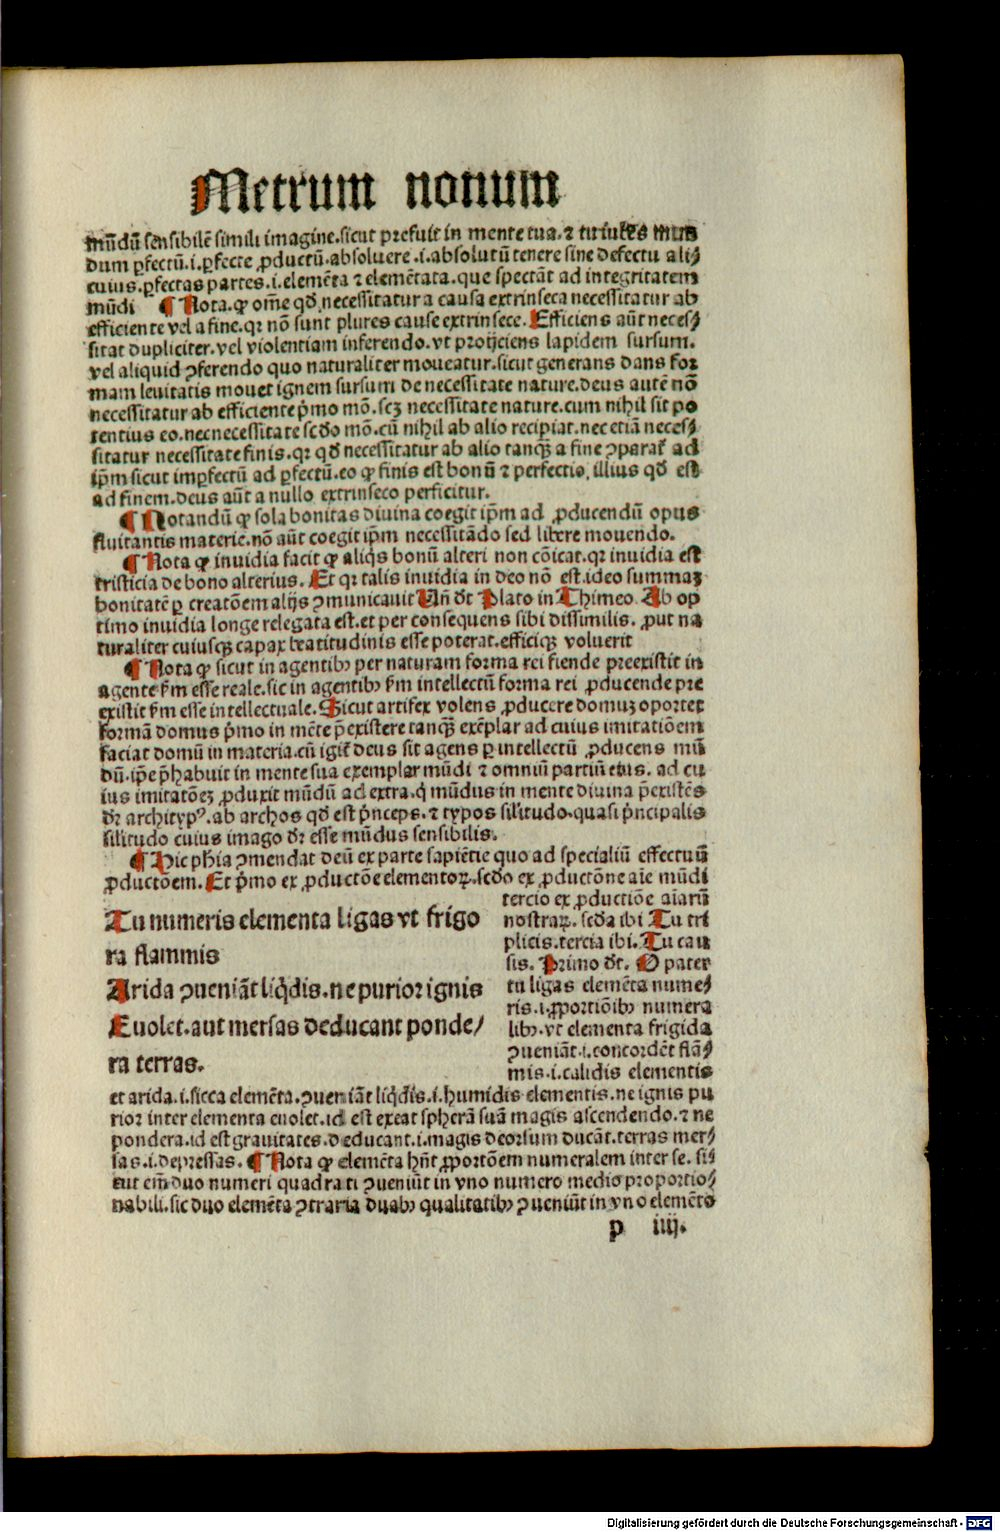 Metrum nonum
mūdū sensibilē simili imagine.sicut prefuit in mente tua.⁊ tu iubes mun
dum ꝑfectū.i.ꝑfecte ꝓductū.absoluere.i.absolutū tenere sine defectu ali⸗
cuius.ꝑfectas partes.i.elemēta ⁊ elemētata.que spectāt ad integritatem
mūdi ¶ Nota.ꝙ om̄e qd̄ necessitatur a causa extrinseca necessitatur ab
efficiente vel a fine.qr nō sunt plures cause extrinsece. Efficiens aūt neces⸗
sitat dupliciter.vel violentiam inferendo.vt proijciens lapidem sursum.
vel aliquid ꝯferendo quo naturaliter moueatur.sicut generans dans for
mam leuitatis mouet ignem sursum de necessitate nature.deus autē nō
necessitatur ab efficiente p̄mo mō.scꝫ necessitate nature.cum nihil sit po
tentius eo.nec necessitate scd̄o mō.cū nihil ab alio recipiat.nec etiā neces⸗
sitatur necessitate finis.qr qd̄ necessitatur ab alio tanqꝫ a fine ꝯparat̄ ad
ip̄m sicut imꝑfectū ad ꝑfectū.eo ꝙ finis est bonū ⁊ perfectio, illius qd̄ est
ad finem.deus aūt a nullo extrinseco perficitur.
¶ Notandū ꝙ sola bonitas diuina coegit ip̄m ad ꝓducendū opus
fluitantis materie.nō aūt coegit ip̄m necessitādo sed libere mouendo.
¶ Nota ꝙ inuidia facit ꝙ aliq̄s bonū alteri non cōicat.qr inuidia est
tristicia de bono alterius. Et qr talis inuidia in deo nō est.ideo summaꝫ
bonitatē ꝑ creatōem alijs ꝯmunicauit Vn̄ dt̄ Plato in Thimeo. Ab op
timo inuidia longe relegata est.et per consequens sibi dissimilis. ꝓut na
turaliter cuiusqꝫ capax beatitudinis esse poterat.efficiqꝫ voluerit
¶ Nota ꝙ sicut in agentibꝫ per naturam forma rei fiende preexistit in
agente ẜm esse reale.sic in agentibꝫ ẜm intellectū forma rei ꝓducende pre
existit ẜm esse intellectuale. Sicut artifex volens ꝓducere domuꝫ oportet
formā domus p̄mo in mēte p̄existere tanqꝫ exēplar ad cuius imitatiōem
faciat domū in materia.cū igit̄ deus sit agens ꝑ intellectū ꝓducens mū
dū.ip̄e p̄habuit in mente sua exemplar mūdi ⁊ omniū partiū eius. ad cu
ius imitatōeꝫ ꝓduxit mūdū ad extra.q̄ mūdus in mente diuina p̄existēs
dr̄ architypꝰ.ab archos qd̄ est p̄nceps.⁊ typos sil̄itudo.quasi p̄ncipalis
sil̄itudo cuius imago dr̄ esse mūdus sensibilis.
¶ Hic ph̄ia ꝯmendat deū ex parte sapiētie quo ad specialiū effectuū
ꝓductōem. Et p̄mo ex ꝓductōe elementoꝝ.scd̄o ex ꝓductōne aīe mūdi
tercio ex ꝓductiōe aīarū
nostraꝝ. scd̄a ibi Tu tri
plicis.tercia ibi. Tu cau
sis. Primo dt̄. O pater
tu ligas elemēta nume⸗
ris.i.ꝓportiōibꝫ numera
libꝫ.vt elementa frigida
ꝯueniāt.i.concordēt flā⸗
mis.i.calidis elementis
Tu numeris elementa ligas vt frigo
ra flammis
Arida ꝯueniāt liq̄dis.ne purior ignis
Euolet.aut mersas deducant ponde⸗
ra terras.
et arida.i.sicca elemēta.ꝯueniāt liq̄dis.i.humidis elementis.ne ignis pu
rior inter elementa euolet.id est exeat spherā suā magis ascendendo.⁊ ne
pondera.id est grauitates.deducant.i.magis deorsum ducāt.terras mer⸗
sas.i.depressas. ¶ Nota ꝙ elemēta hn̄t ꝓportōem numeralem inter se. si⸗
cut em̄ duo numeri quadrati ꝯueniūt in vno numero medio proportio⸗
nabili.sic duo elemēta ꝯtraria duabꝫ qualitatibꝫ ꝯueniūt in vno elemēto
p iiij.
Digitalisierung gefördert durch die Deutsche Forschungsgemeinschaft - DFG